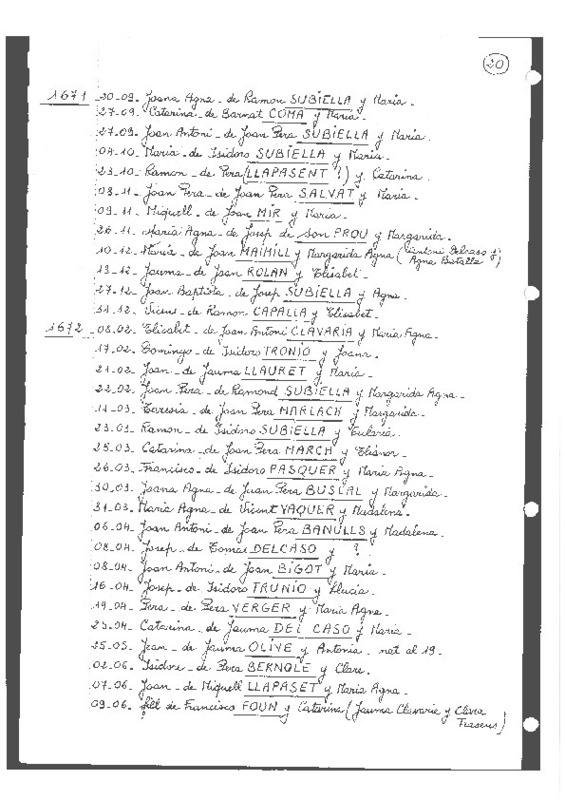 20
1671 20-09. Joana Agna - de Ramon SUBIELLA y Maria.
27-09. Catarina - de Barnat COMA y Maria.
27-09. Joan Antoni - de Joan Pera SUBIELLA y Maria.
04-10. Maria - de Isidoro SUBIELLA y Maria.
23-10. Ramon - de Pera (LLAPASENT ?) y Catarina
08-11. Joan Pera - de Joan Pera SALVAT y Maria.
09-11. Miquell - de Joan MIR y Maria.
26-11. Maria Agna - de Josep de Son PROU y Margarida.
10-12. Maria - de Joan MAIHILL y Margarida Agna (Antoni Delcaso y
Agna Batalla)
13-12. Jauma - de Joan ROLAN y Elisabet.
27-12. Joan Baptista - de Josep SUBIELLA y Agna.
31-12. Vicens - de Ramon CAPALLA y Elisabet.
1672 08-02. Elisabet - de Joan Antoni CLAVARIA y Maria Agna.
17-02. Domingo - de Isidoro TRONJO y Joana.
21-02. Joan - de Jauma LLAURET y Maria.
22-02. Joan Pera - de Ramond SUBIELLA y Margarida Agna.
14-03. Teresia - de Joan Pera MARLACH y Margarida.
23-03. Ramon - de Isidoro SUBIELLA y Eularia.
25-03. Catarina - de Joan Pera MARCH y Elisnor.
26-03. Francisco - de Isidoro PASQUER y Maria Agna.
30-03. Joana Agna - de Juan Pera BUSCAL y Margarida.
31-03. Maria Agna - de Vicent VAQUER y Madalena.
06-04. Joan Antoni - de Joan Pera BANULLS y Madalena.
08-04. Josep - de Tomas DELCASO y ?
08-04. Joan Antoni - de Joan BIGOT y Maria.
16-04. Josep - de Isidoro TRUNJO y Llucia.
19-04. Pera - de Pera VERGER y Maria Agna.
23-04. Catarina - de Jauma DEL CASO y Maria.
25-05. Jean - de Jauma OLIVE y Antonia - nat al 19.
02-06. Isidore - de Pera BERNOLE y Clare.
07-06. Joan - de Miquell LLAPASET y Maria Agna.
09-06. fill de Francisco FOUN y Catarina (Jauma Clavarie y Clara
Traserus)